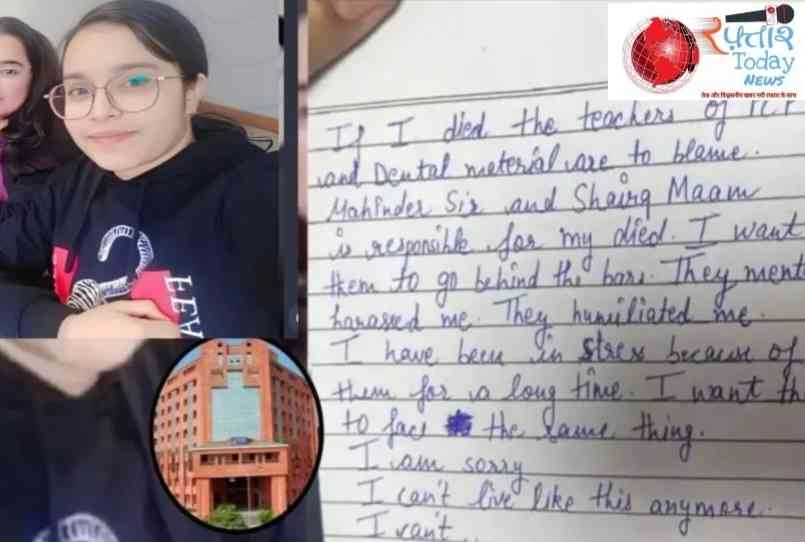 रफ़्तार
Today
NEWS
If I died the teachers of
and Dental material are to blame.
Mahinder Sir and Shairg Maam
is responsible for my died. I want
them to go behind the bars. They ment
harassed me. They humiliated me.
I have been in stress because of
them for a long time. I want th
to face the same thing.
I am sorry
I can't live like this anymore.
I can't..